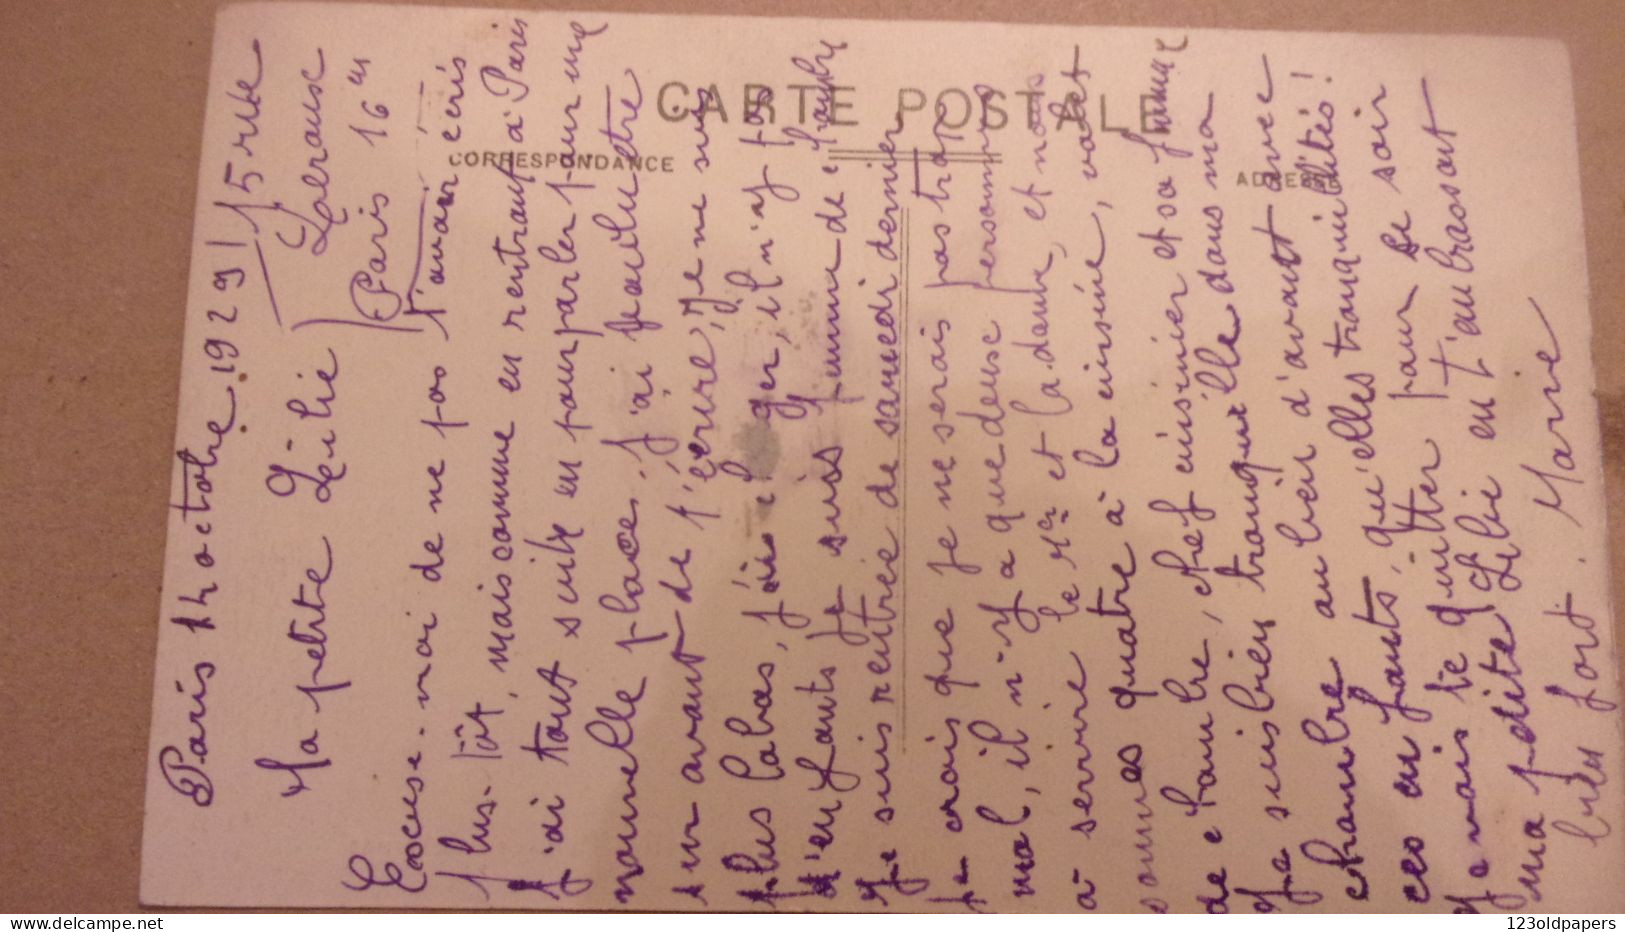 CARTE POSTALE
CORRESPONDANCE
ADRESSE
Paris 14 octobre 1929 15 rue
Ma petite Lilie
Paris 16em
Excuse-moi de ne pas t'avoir ecris
plus-tôt, mais comme en rentrant à Paris
j'ai tout suite en pourparler pour une
nouvelle places, j'ai
sur avant de t'écrire, Je me suis
plus labas, il n'y pas
d'enfants je suis femme de chambre
Je suis rentrée de samedi dernier
je crois que je ne serais pas trop
mal, il n'y a que deuse personnes
à servire le Mr et la dame, et nous
sommes quatre à la cuisine, valet
de chambre, chef cuisinier et sa femme
Je suis bien tranquille dans ma
chambre au lieu d'avant avec
ces enfants, qu'elles tranquilités!
Je vais te quitter pour se soir
ma petite Lilie en t'embrassant
bien fort. Marie
123oldpapers